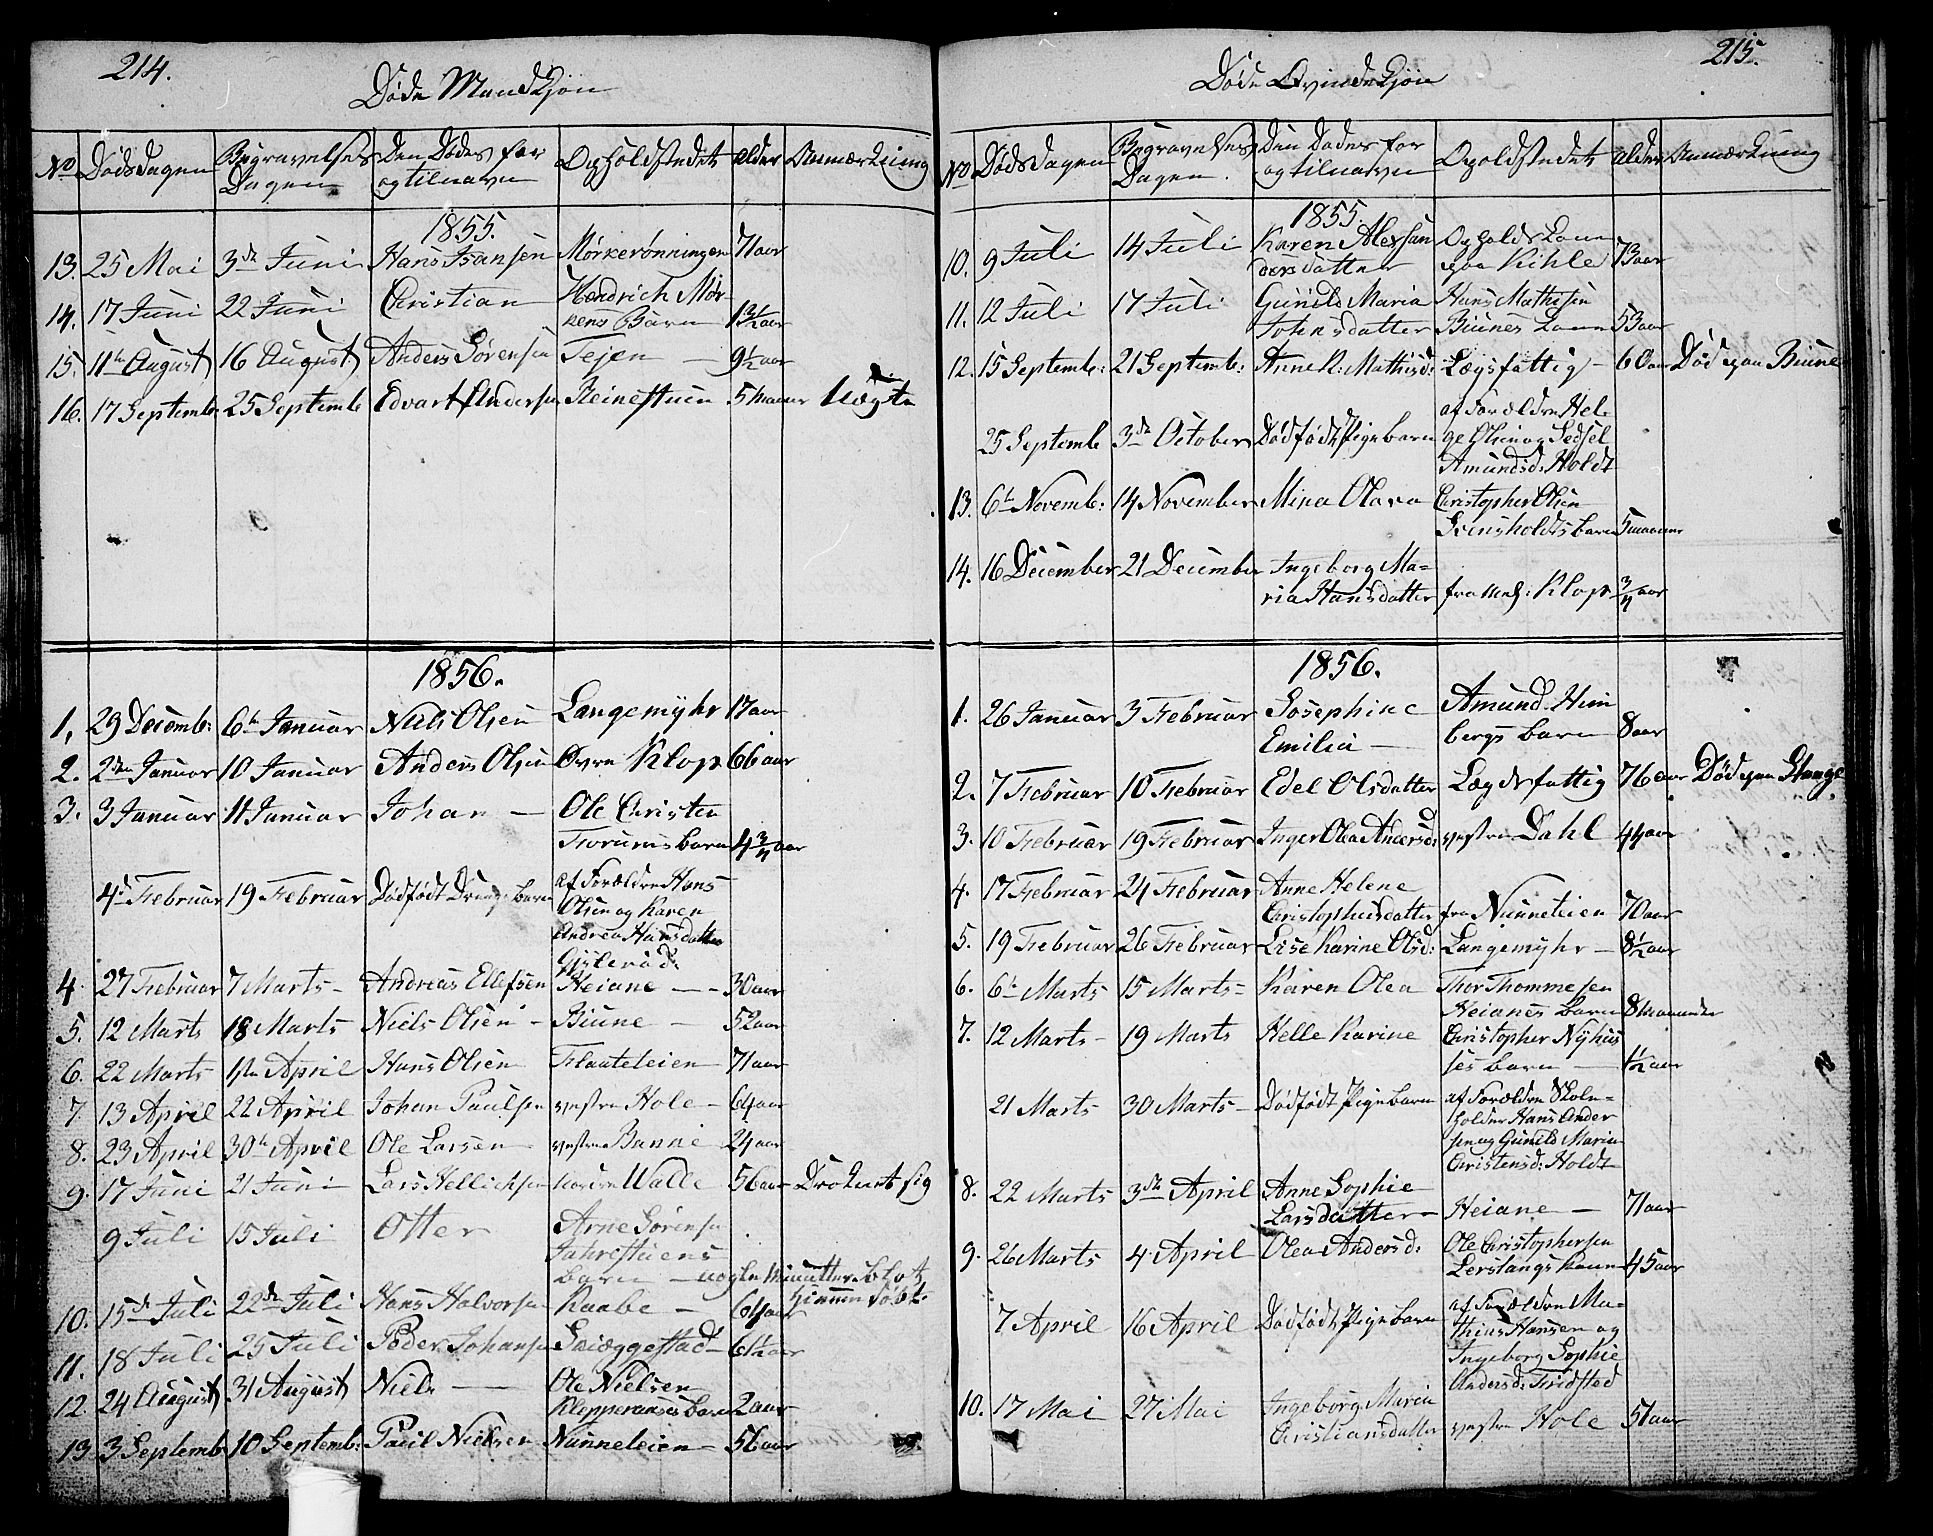 214.
Døde Mandkjøn
No Dødsdagen Begravelses Dagen Den Dødes for og tilnavn Opholdstedet alder Anmærkning
1855.
13. 25 Mai 3die Juni Hans Isaksen Mørkerønningen 71 aar
14. 17 Juni 22 Juni Christian Hendrich Mør-
kens Barn 1 3/4 aar
15. 11te August 16 August Anders Sørensen Tejen — 9 1/2 aar
16. 17 Septemb: 25 Septemb Edvart Andersen Steinstuen 5 Maaner Uægte
1856.
1. 29 Decemb: 6te Januar Niels Olsen Langemyhr 17 aar
2. 2den Januar 10 Januar Anders Olsen Øvre Klop 66 aar
3. 3 Januar 11 Januar Johan — Ole Christen
Trorums barn 4 3/4 aar
4de Februar 19 Februar Dødfødt Drengebarn af Forældre Hans
Olsen og Karen
Andrea Hansdatter
Gislerød:
4. 27 Februar 7 Marts - Andreas Ellefsen Heiane — 30 aar
5. 12 Marts 18 Marts Niels Olsen - Biune — 52 aar
6. 22 Marts 1ste April Hans Olsen Flaateleien 71 aar
7. 13 April 22 April Johan Paulsen vestre Hole - 64 aar
8. 23 April 30te April Ole Larsen - vestre Banne 24 aar
9. 17 Juni 21 Juni Lars Hellichsen nordre Walle 56 aar Droknet sig
9 Juli 15 Juli Otter Arne Sørensen
Jahrestuens
barn — nogle Minutter blot
hiemmedøbt.
10. 15de Juli 22de Juli Hans Halvorsen Kaabe — 64 aar
11. 18 Juli 25 Juli Peder Johansen Skiæggestad 61 1/2 aar
12. 24 August 31 August Niels — Ole Nielsen
Kloppemoens barn 2 aar
13. 3 Septemb 10 Septemb: Paul Nielsen Nunneteien — 56 aar
215.
Døde Qvindekjøn
No Dødsdagen Begravelses Dagen. Den Dødes for og tilnavn Opoldstedet alder Anmærkning
1855.
10. 9 Juli 14 Juli Karen Alexsan Opholds Kone
dersdatter paa Kihle 73 aar
11. 12 Juli 17 Juli Gunild Maria Hans Mathisen
Johnsdatter Biunes Kone 53 aar
12. 15 Septemb: 21 Septemb: Anne K: Mathisd: Lægsfattig - 60 aar Død paa Biune
25 Septemb 3die October Dødfødt Pigebarn af Forældre Hel-
ge Olsen og Sedsel
Amundsd: Holdt
13. 6te Novemb: 14 November Mina Olava Christopher Olsen
Svensholdts barn 5 maaner
14. 16 December 21 December Ingeborg Ma-
ria Hansdatter fra Klop 3/4 aar
1856.
1. 26 Januar 3 Februar Josephine Amund Him
Emilia — bergs barn 8 aar
2. 7 Februar 10 Februar Edel Olsdatter Lægdsfattig 76 aar Død paa Stange.
3. 10 Februar 19 Februar Inger Olea Andersd: vestre Dahl 44 aar
4. 17 Februar 24 Februar Anne Helene
Christophersdatter fra Nunneteien 70 aar
5. 19 Februar 26 Februar Lise Karine Olsd: Langemyhr — 8 1/2 aar
6. 6te Marts 15 Marts - Karen Olea Thor Thommesen
Heianes barn 8 Maaneder
7. 12 Marts - 19 Marts Helle Karine Christopher Nyhus
ses barn — 1 1/2 aar
21 Marts 30 Marts - Dødfødt Pigebarn af Forældre Skole-
holder Hans Ander
sen og Gunild Maria
Christensd: Holdt
8. 22 Marts 3die April Anne Sophie
Larsdatter — Heiane — 71 aar
9. 26 Marts 4 April Olea Andersd: Ole Christophersen
Lerstangs Kone 45 aar
7 April 16 April Dødfødt Pigebarn af Forældre Ma-
thias Hansen og
Ingeborg Sophie
Andersd: Fridstad
10. 17 Mai 27 Mai Ingeborg Maria
Christiansdatter vestre Hole 51 aar